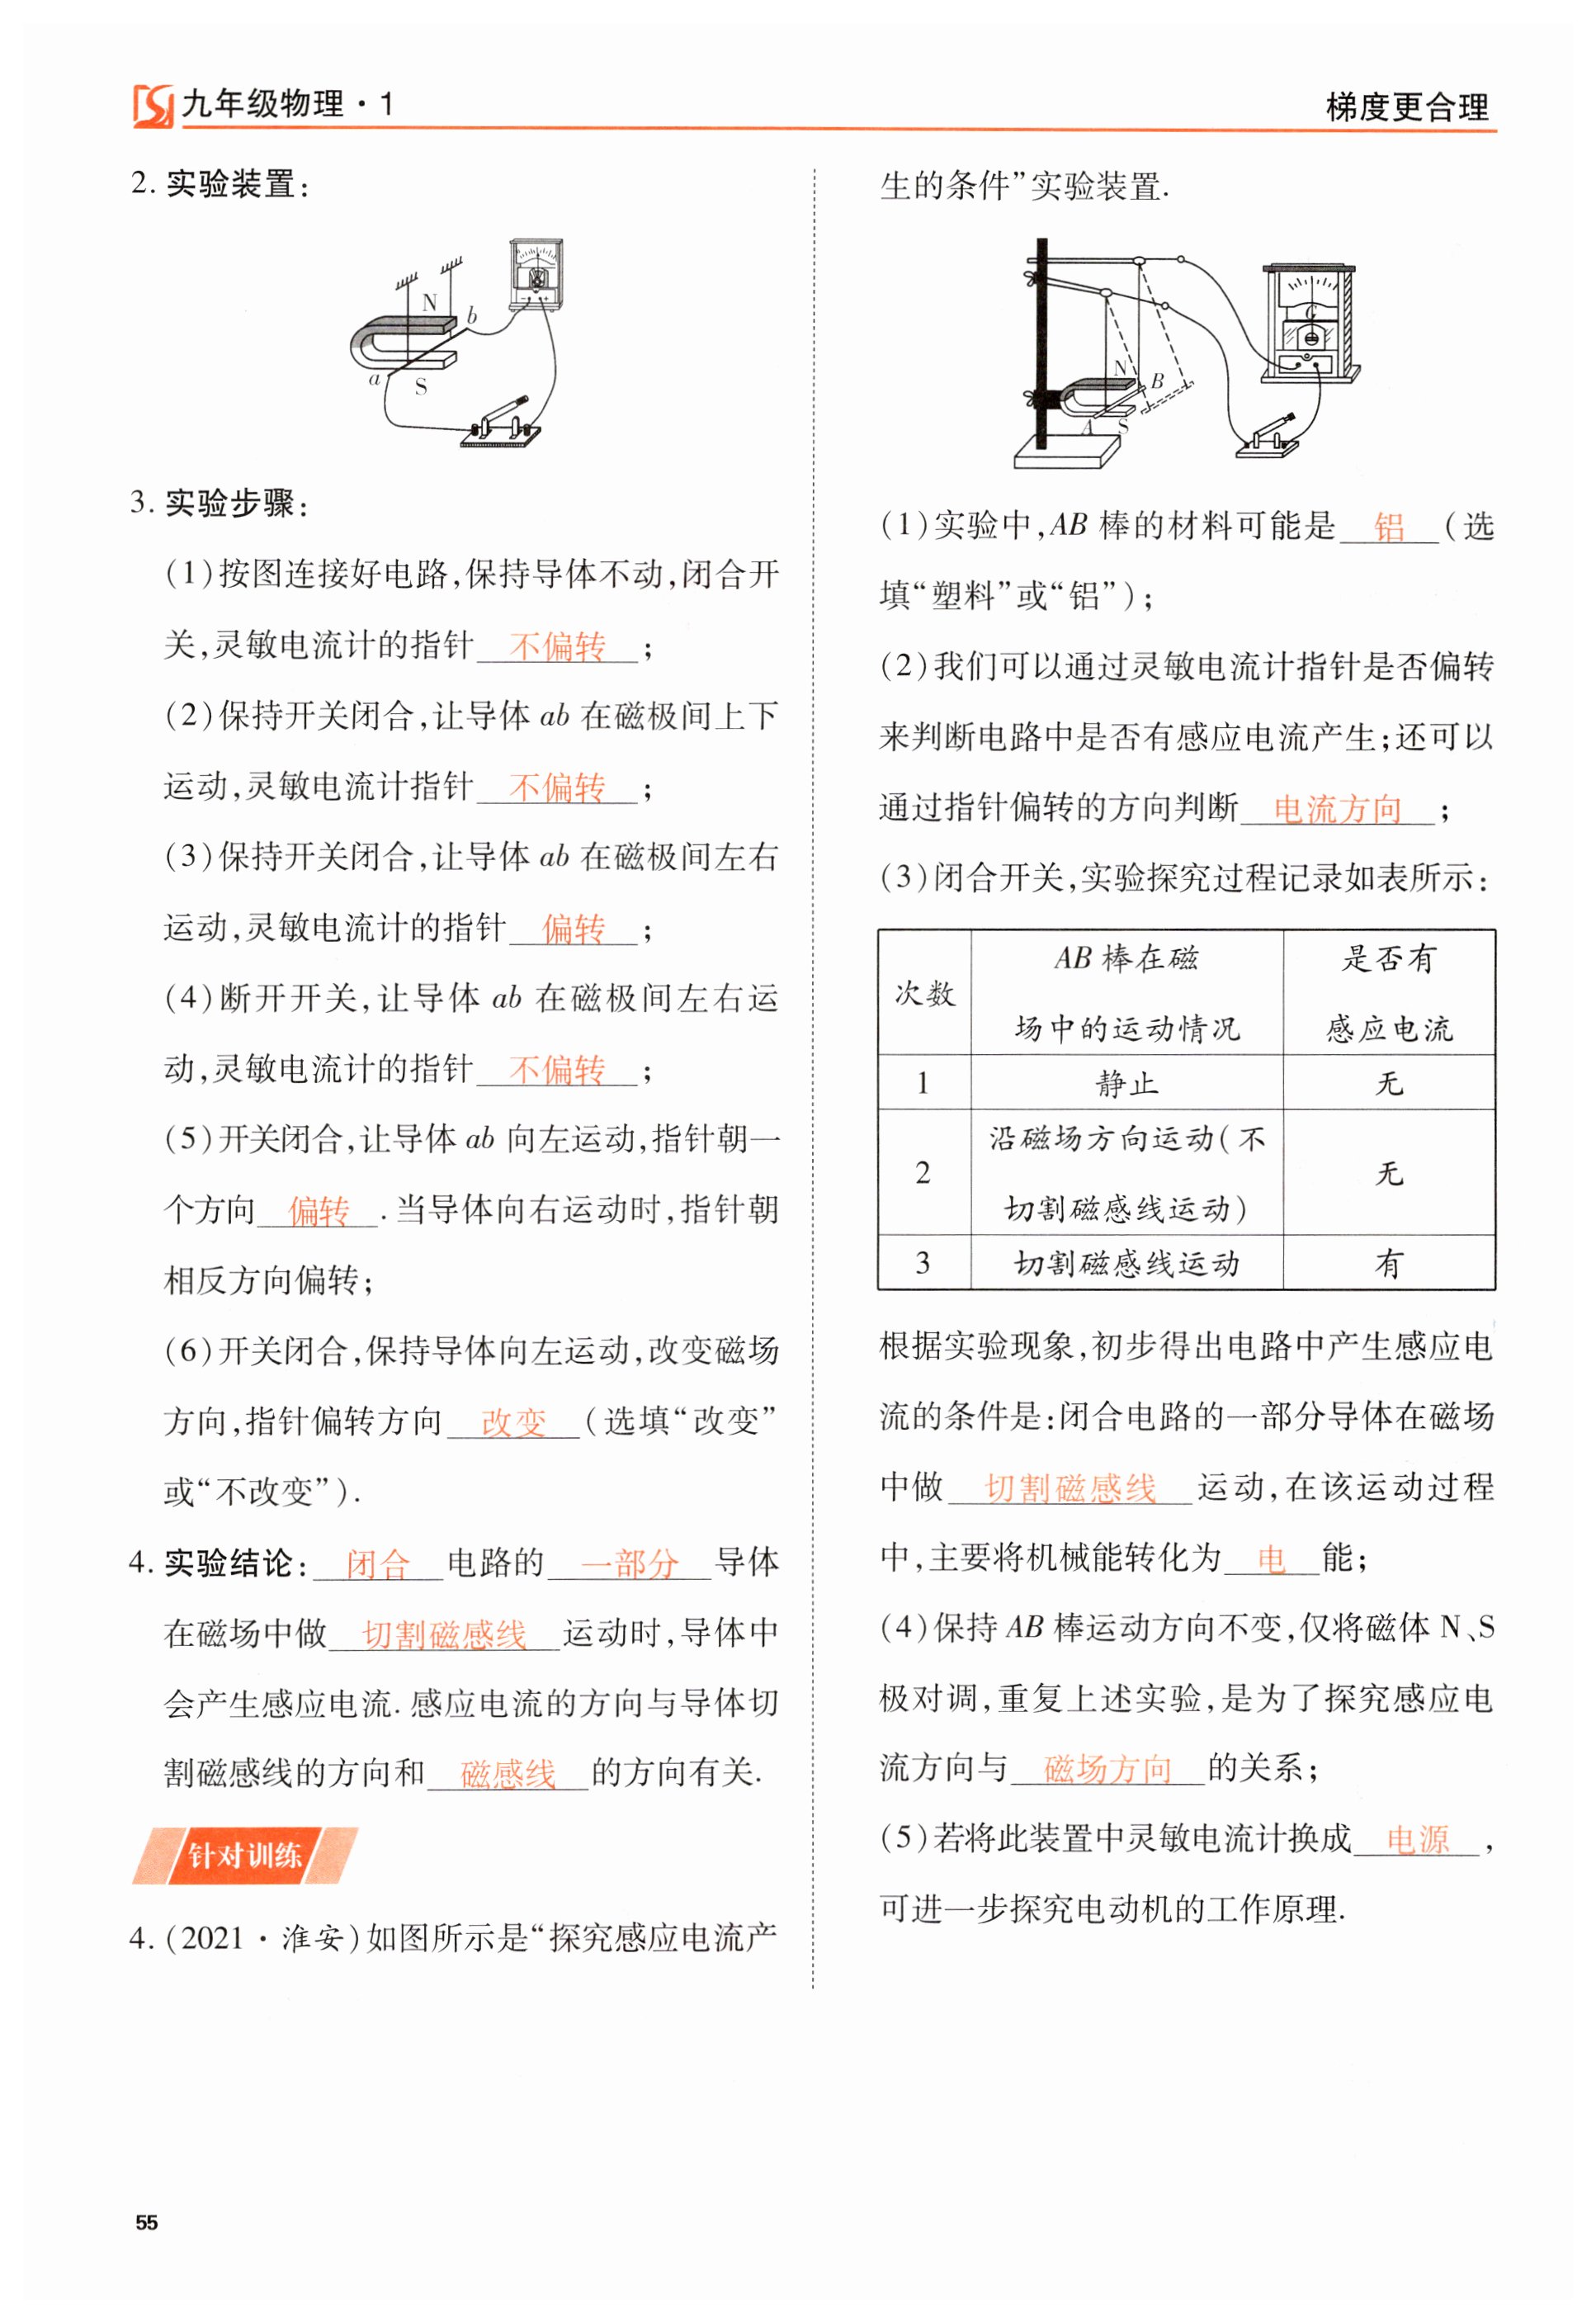 九年级物理·1
梯度更合理
2. 实验装置：
N
b
a
S
3. 实验步骤：
(1)按图连接好电路,保持导体不动,闭合开
关,灵敏电流计的指针 不偏转 ；
(2)保持开关闭合,让导体 ab 在磁极间上下
运动,灵敏电流计指针 不偏转 ；
(3)保持开关闭合,让导体 ab 在磁极间左右
运动,灵敏电流计的指针 偏转 ；
(4)断开开关,让导体 ab 在磁极间左右运
动,灵敏电流计的指针 不偏转 ；
(5)开关闭合,让导体 ab 向左运动,指针朝一
个方向 偏转 .当导体向右运动时,指针朝
相反方向偏转；
(6)开关闭合,保持导体向左运动,改变磁场
方向,指针偏转方向 改变 (选填“改变”
或“不改变”).
4. 实验结论： 闭合 电路的 一部分 导体
在磁场中做 切割磁感线 运动时,导体中
会产生感应电流.感应电流的方向与导体切
割磁感线的方向和 磁感线 的方向有关.
针对训练
4. (2021·淮安)如图所示是“探究感应电流产
55
生的条件”实验装置.
G
N
B
A
S
(1)实验中,AB 棒的材料可能是 铝 (选
填“塑料”或“铝”)；
(2)我们可以通过灵敏电流计指针是否偏转
来判断电路中是否有感应电流产生；还可以
通过指针偏转的方向判断 电流方向 ；
(3)闭合开关,实验探究过程记录如表所示：
次数
AB 棒在磁
场中的运动情况
是否有
感应电流
1 静止 无
2
沿磁场方向运动(不
切割磁感线运动)
无
3 切割磁感线运动 有
根据实验现象,初步得出电路中产生感应电
流的条件是：闭合电路的一部分导体在磁场
中做 切割磁感线 运动,在该运动过程
中,主要将机械能转化为 电 能；
(4)保持 AB 棒运动方向不变,仅将磁体 N、S
极对调,重复上述实验,是为了探究感应电
流方向与 磁场方向 的关系；
(5)若将此装置中灵敏电流计换成 电源 ,
可进一步探究电动机的工作原理.